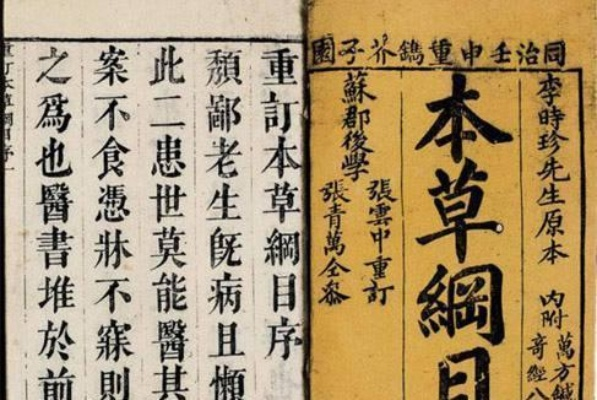 同治壬申重鐫芥子園
李時珍先生原本
內附
萬方鍼
奇經八
本草綱目
蘇郡後學
張雲中重訂
張青萬仝參
重訂本草綱目序
頽鄙老生旣病且懶
此二患世莫能醫其
案不食憑牀不寐則
之爲也醫書堆於前
重訂本草綱目序一